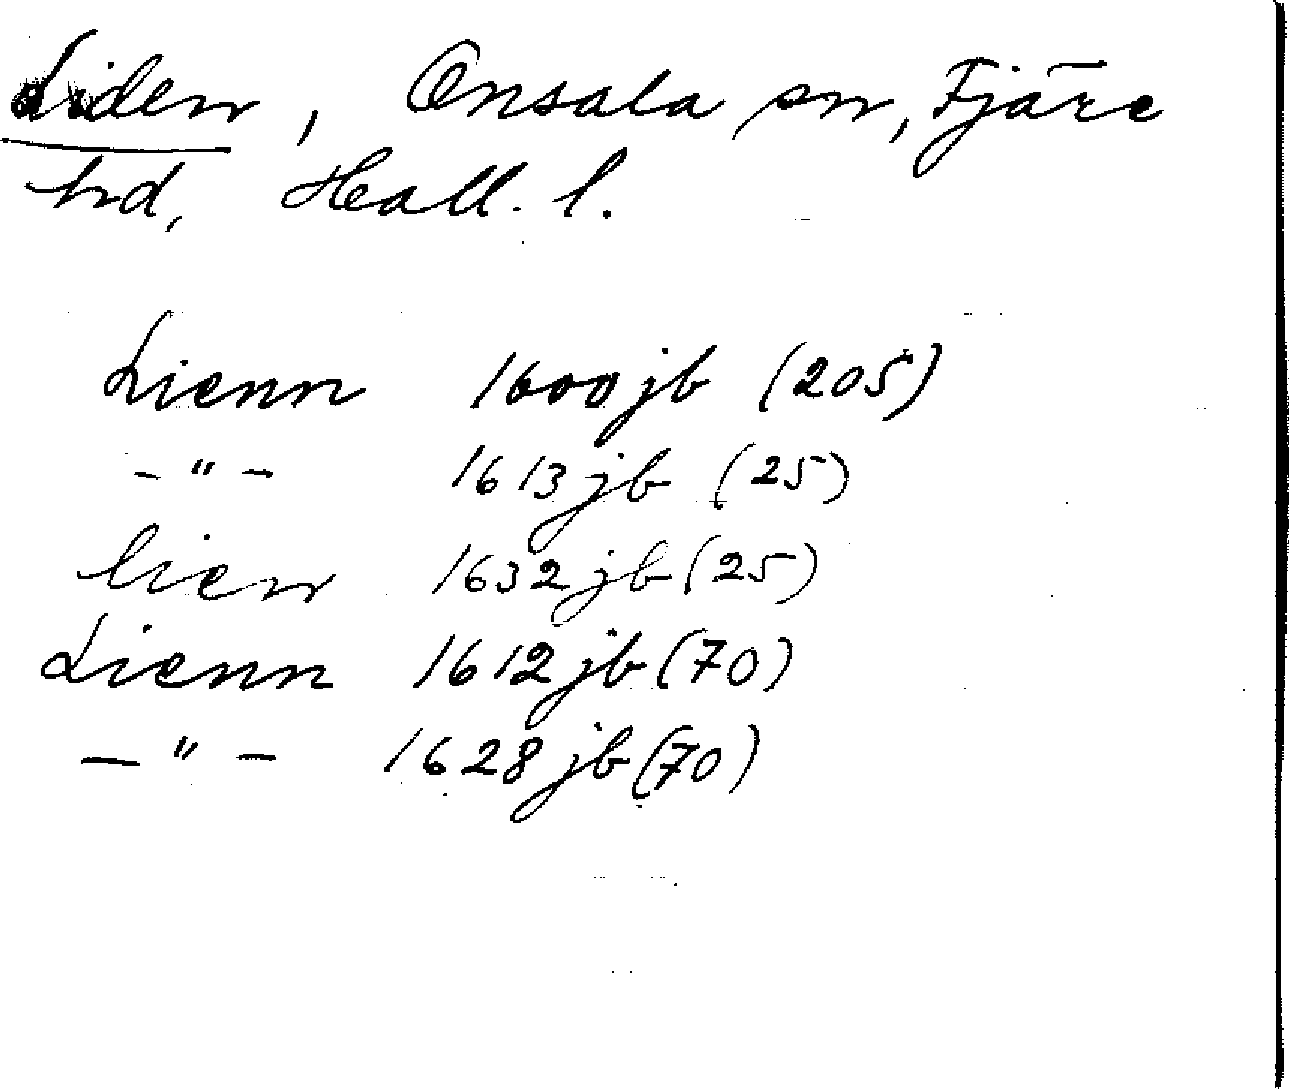 Liden, Onsala sn, Fjäre
hd, Hall. l.
Lienn 1600 jb (205)
- " - 1613 jb (25)
lien 1632 jb (25)
Lienn 1612 jb (70)
- " - 1628 jb (70)